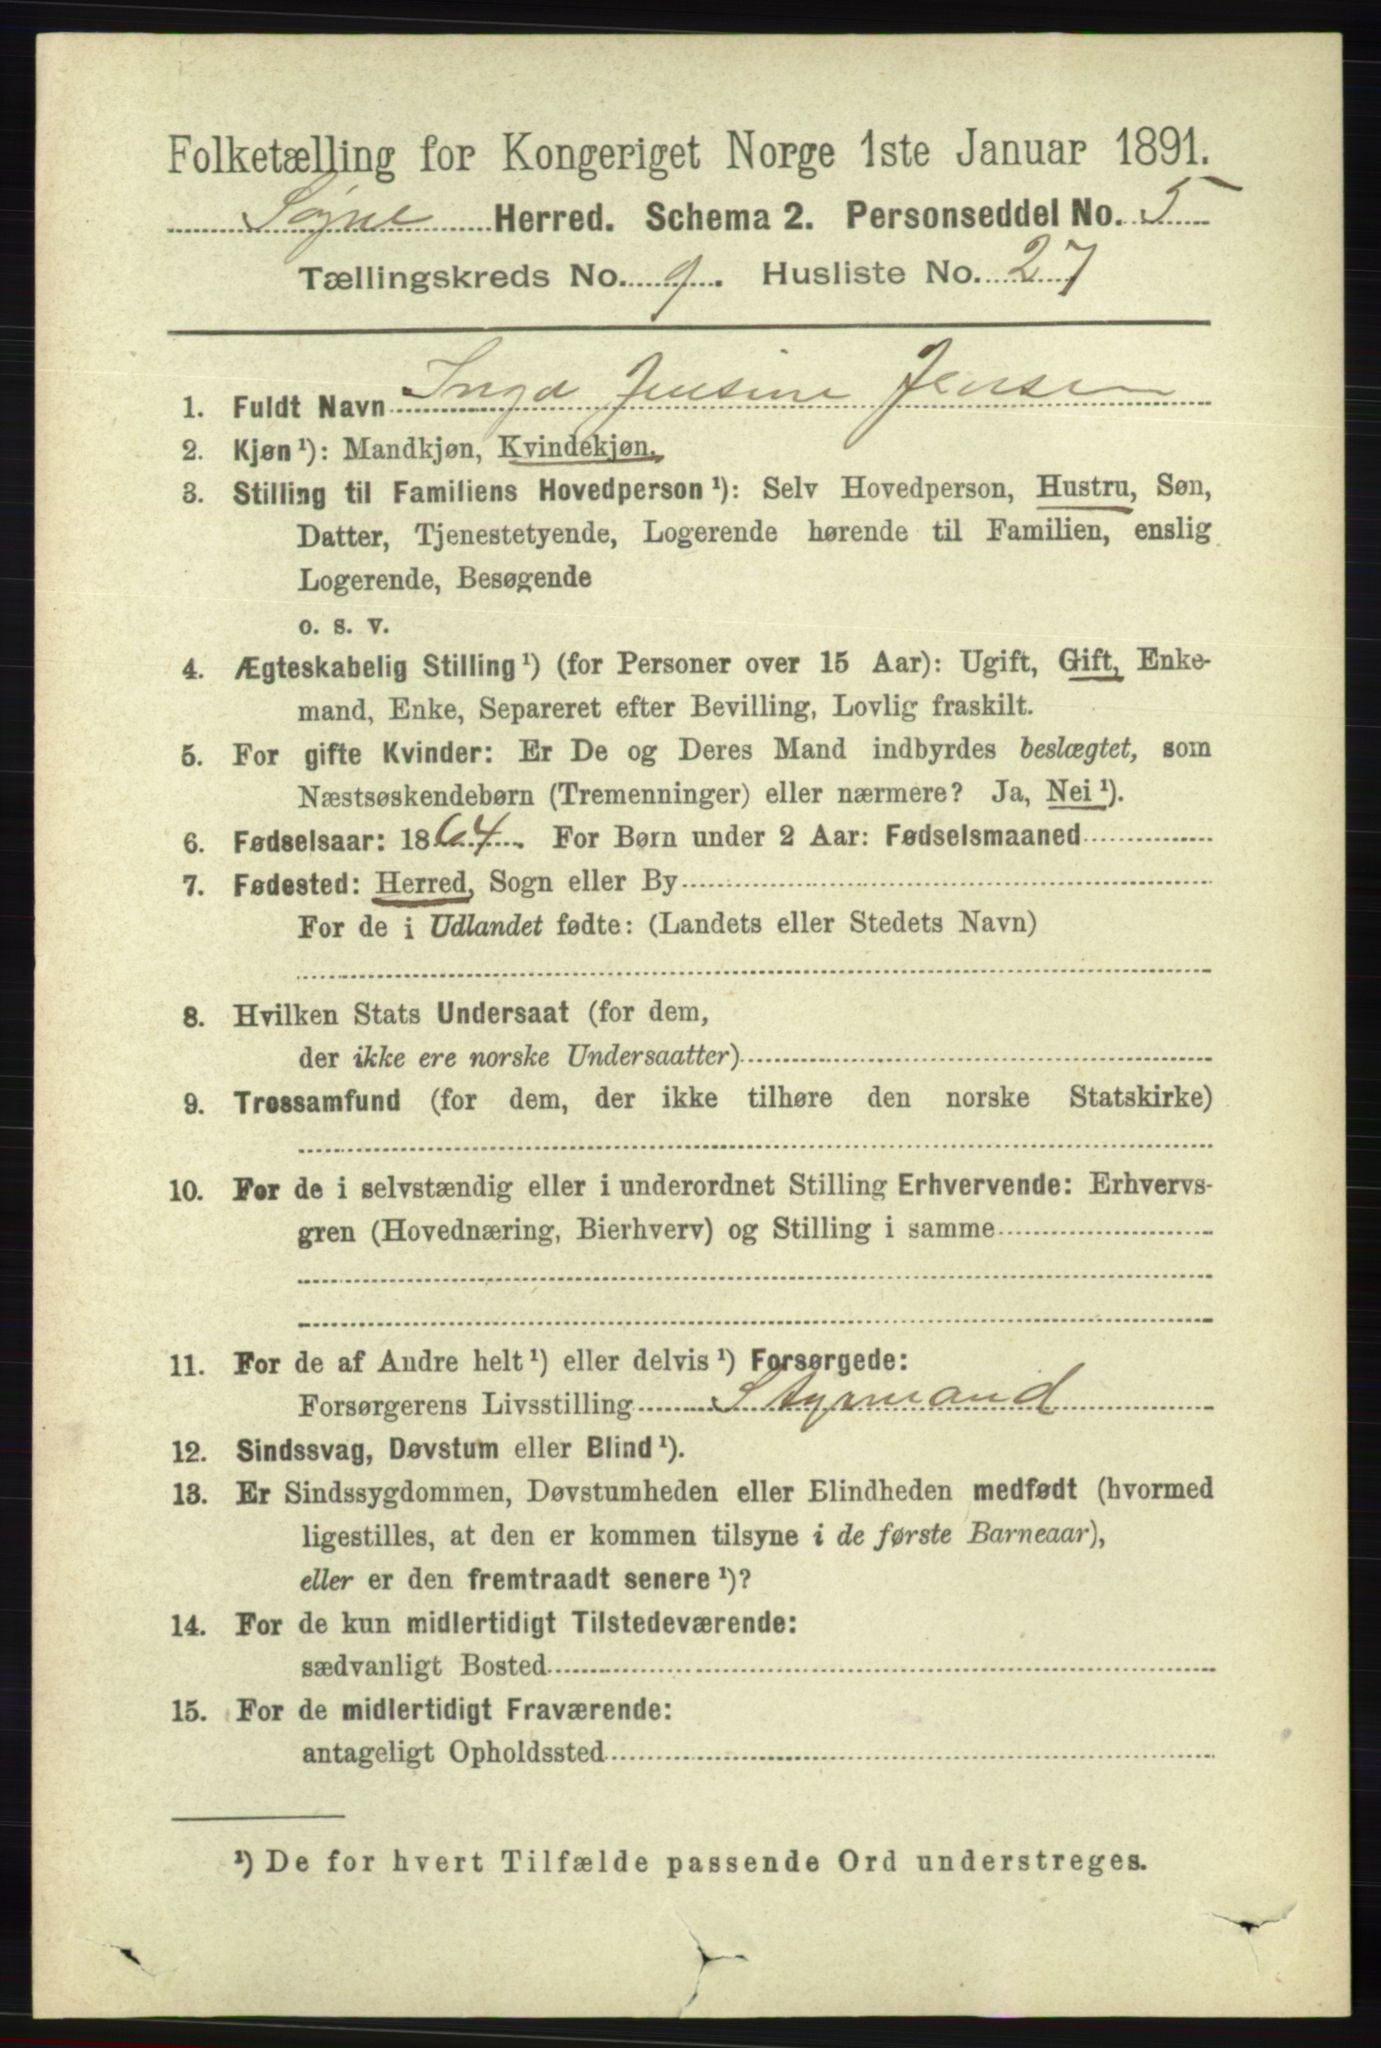 Folketælling for Kongeriget Norge 1ste Januar 1891.
Søgne Herred. Schema 2. Personseddel No. 5
Tællingskreds No. 9. Husliste No. 27
1. Fuldt Navn Inga Jensine Jensen
2. Kjøn¹): Mandkjøn, Kvindekjøn.
3. Stilling til Familiens Hovedperson¹): Selv Hovedperson, Hustru, Søn,
Datter, Tjenestetyende, Logerende hørende til Familien, enslig
Logerende, Besøgende
o. s. v.
4. Ægteskabelig Stilling¹) (for Personer over 15 Aar): Ugift, Gift, Enke-
mand, Enke, Separeret efter Bevilling, Lovlig fraskilt.
5. For gifte Kvinder: Er De og Deres Mand indbyrdes beslægtet, som
Næstsøskendebørn (Tremenninger) eller nærmere? Ja, Nei¹).
6. Fødselsaar: 1864. For Børn under 2 Aar: Fødselsmaaned
7. Fødested: Herred, Sogn eller By
For de i Udlandet fødte: (Landets eller Stedets Navn)
8. Hvilken Stats Undersaat (for dem,
der ikke ere norske Undersaatter)
9. Trossamfund (for dem, der ikke tilhøre den norske Statskirke)
10. For de i selvstændig eller i underordnet Stilling Erhvervende: Erhvervs-
gren (Hovednæring, Bierhverv) og Stilling i samme
11. For de af Andre helt¹) eller delvis¹) Forsørgede:
Forsørgerens Livsstilling Styrmand
12. Sindssvag, Døvstum eller Blind¹).
13. Er Sindssygdommen, Døvstumheden eller Blindheden medfødt (hvormed
ligestilles, at den er kommen tilsyne i de første Barneaar),
eller er den fremtraadt senere¹)?
14. For de kun midlertidigt Tilstedeværende:
sædvanligt Bosted
15. For de midlertidigt Fraværende:
antageligt Opholdssted
¹) De for hvert Tilfælde passende Ord understreges.